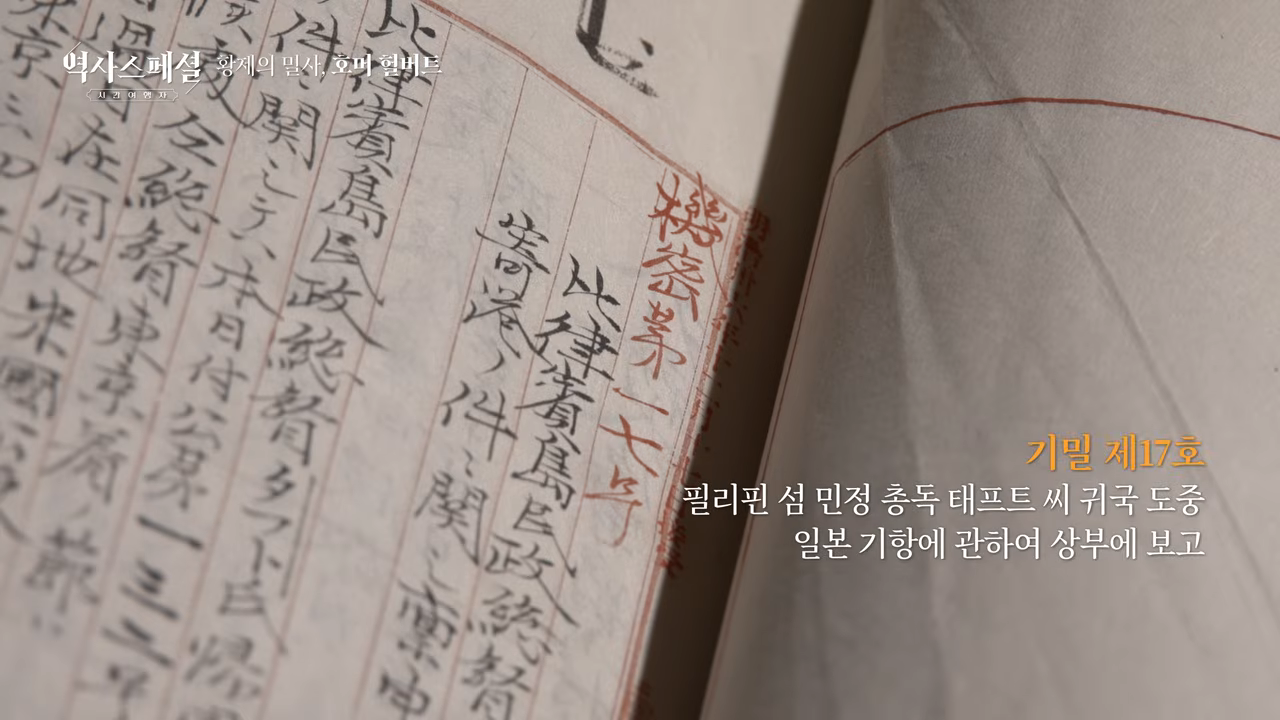 역사스페셜
시간여행자
황제의 밀사, 호머 헐버트
機密第一七号
比律賓島民政総督
寄港ノ件ニ関シ稟申
比律賓島民政総督タフト氏帰
件ニ関シテハ本月付公第一三二号
仝総督東京着ノ節
在同地米國公使
東京
기밀 제17호
필리핀 섬 민정 총독 태프트 씨 귀국 도중
일본 기항에 관하여 상부에 보고